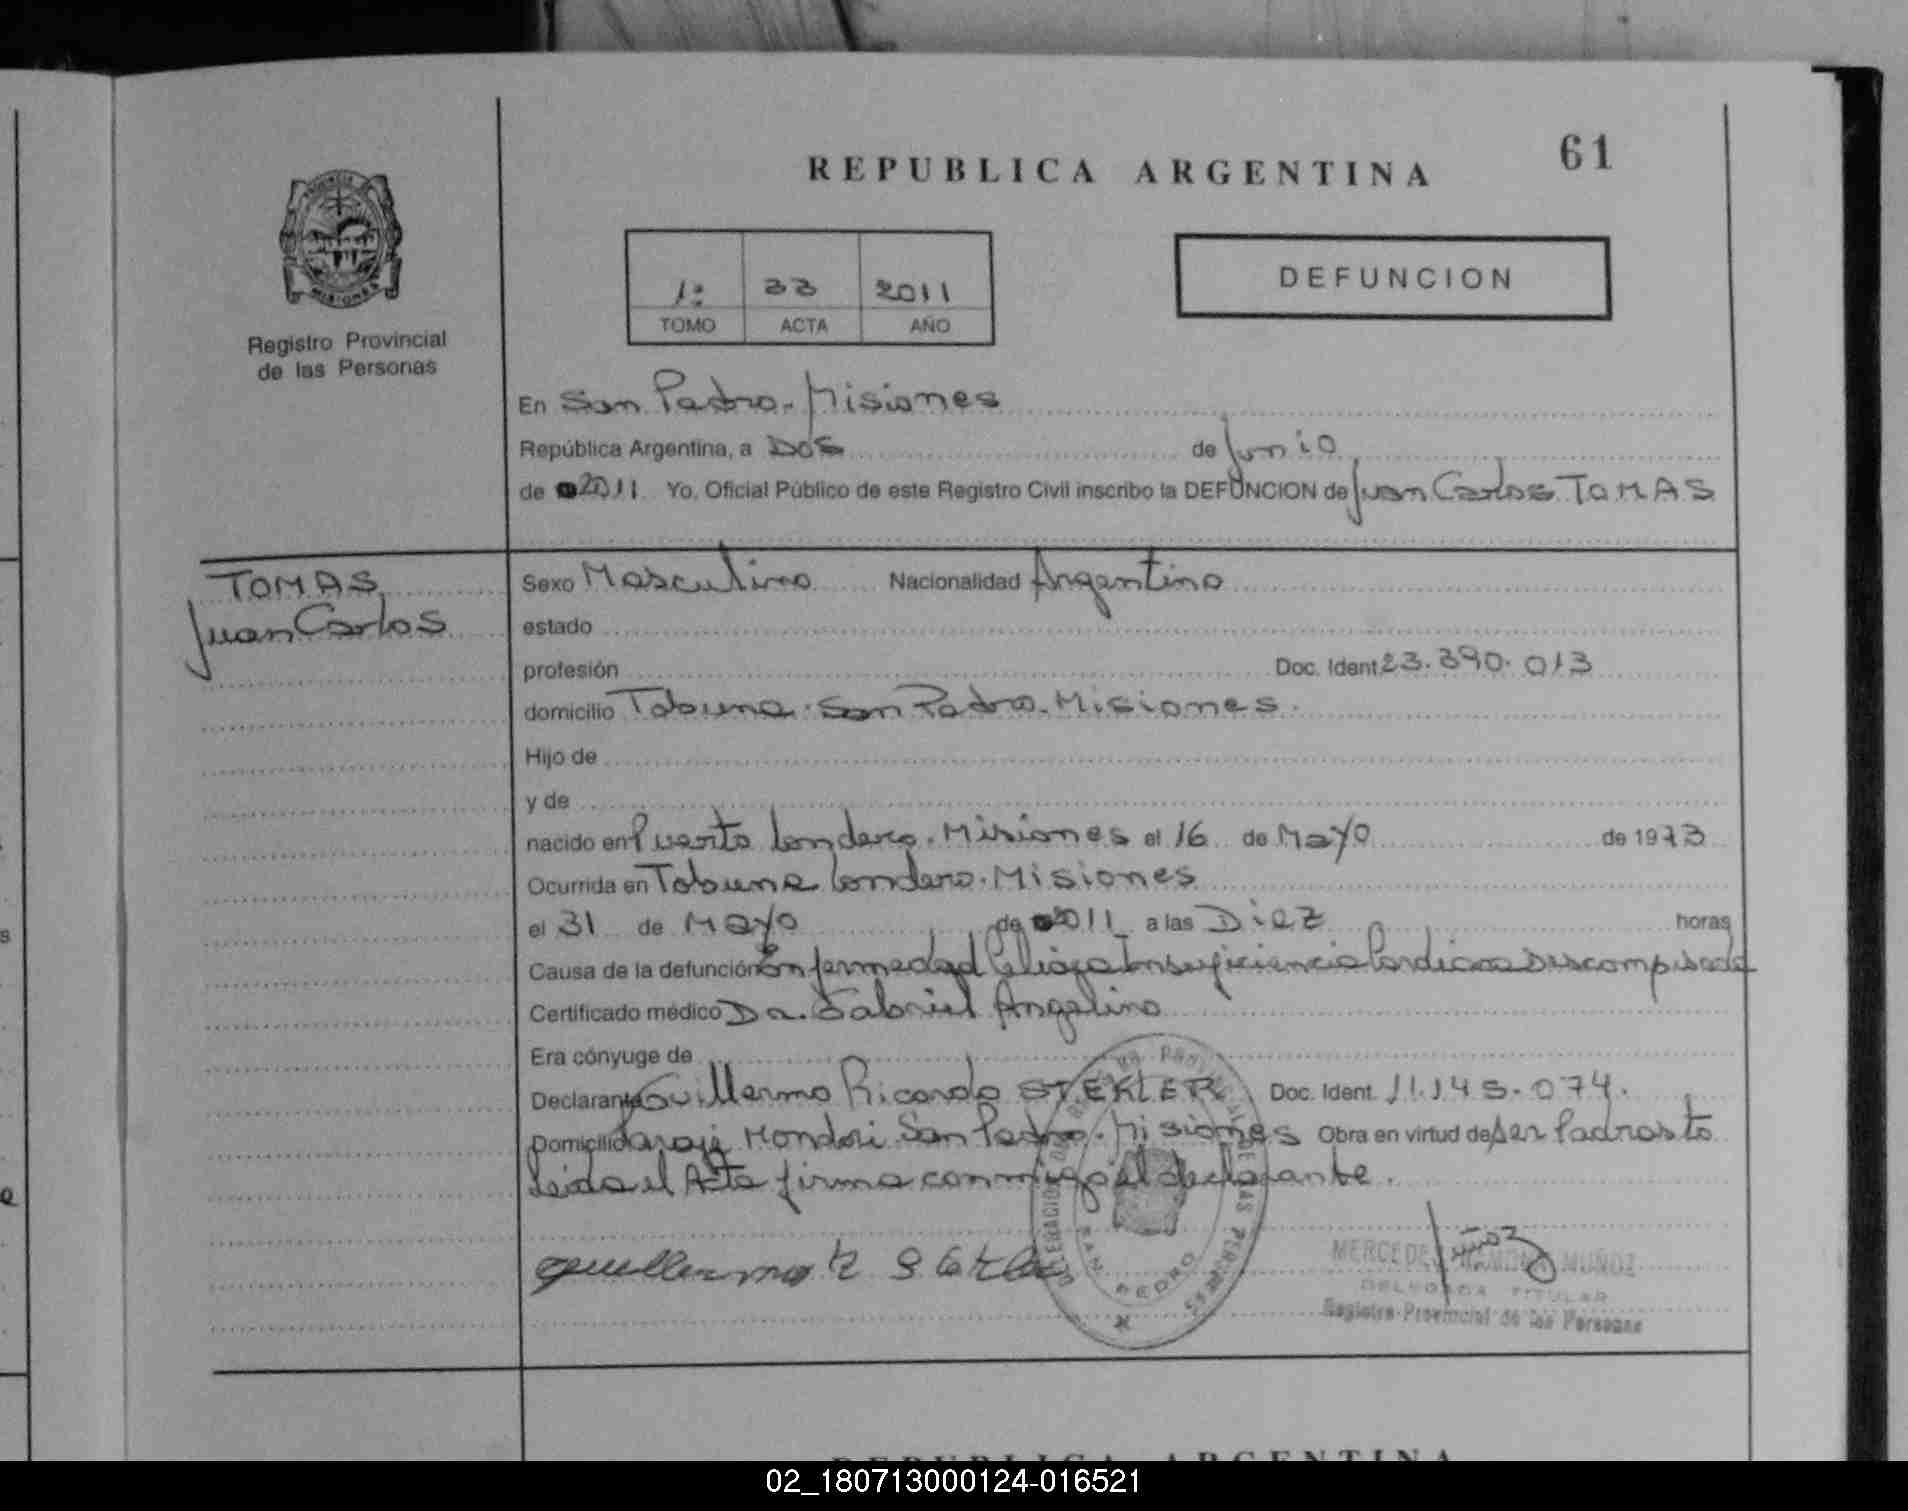 61
REPUBLICA ARGENTINA
1º 33 2011
TOMO ACTA AÑO
DEFUNCION
Registro Provincial
de las Personas
En San Pedro. Misiones
República Argentina, a Dos de Junio
de 2011 Yo, Oficial Público de este Registro Civil inscribo la DEFUNCION de Juan Carlos TOMAS
TOMAS
Juan Carlos
Sexo Masculino Nacionalidad Argentino
estado
profesión Doc. Ident 23.390.013
domicilio Tobuna. San Pedro. Misiones.
Hijo de
y de
nacido en Puerto Londero. Misiones el 16 de Mayo de 1973
Ocurrida en Tobuna Londero. Misiones
el 31 de Mayo de 2011 a las Diez horas
Causa de la defunción Enfermedad Insuficiencia Cardiaca
Certificado médico Dr. Gabriel Angelino
Era cónyuge de
Declarante Guillermo Ricardo STEKLER Doc. Ident. 11.145.074.
Domicilio Paraje Mondori San Pedro. Misiones Obra en virtud de ser Padrasto
Leida el Acta firma conmigo el declarante.
MERCEDES RAMONA MUÑOZ
DELEGADA TITULAR
Registro Provincial de las Personas
SAN PEDRO
MISIONES
REPUBLICA ARGENTINA
02_180713000124-016521